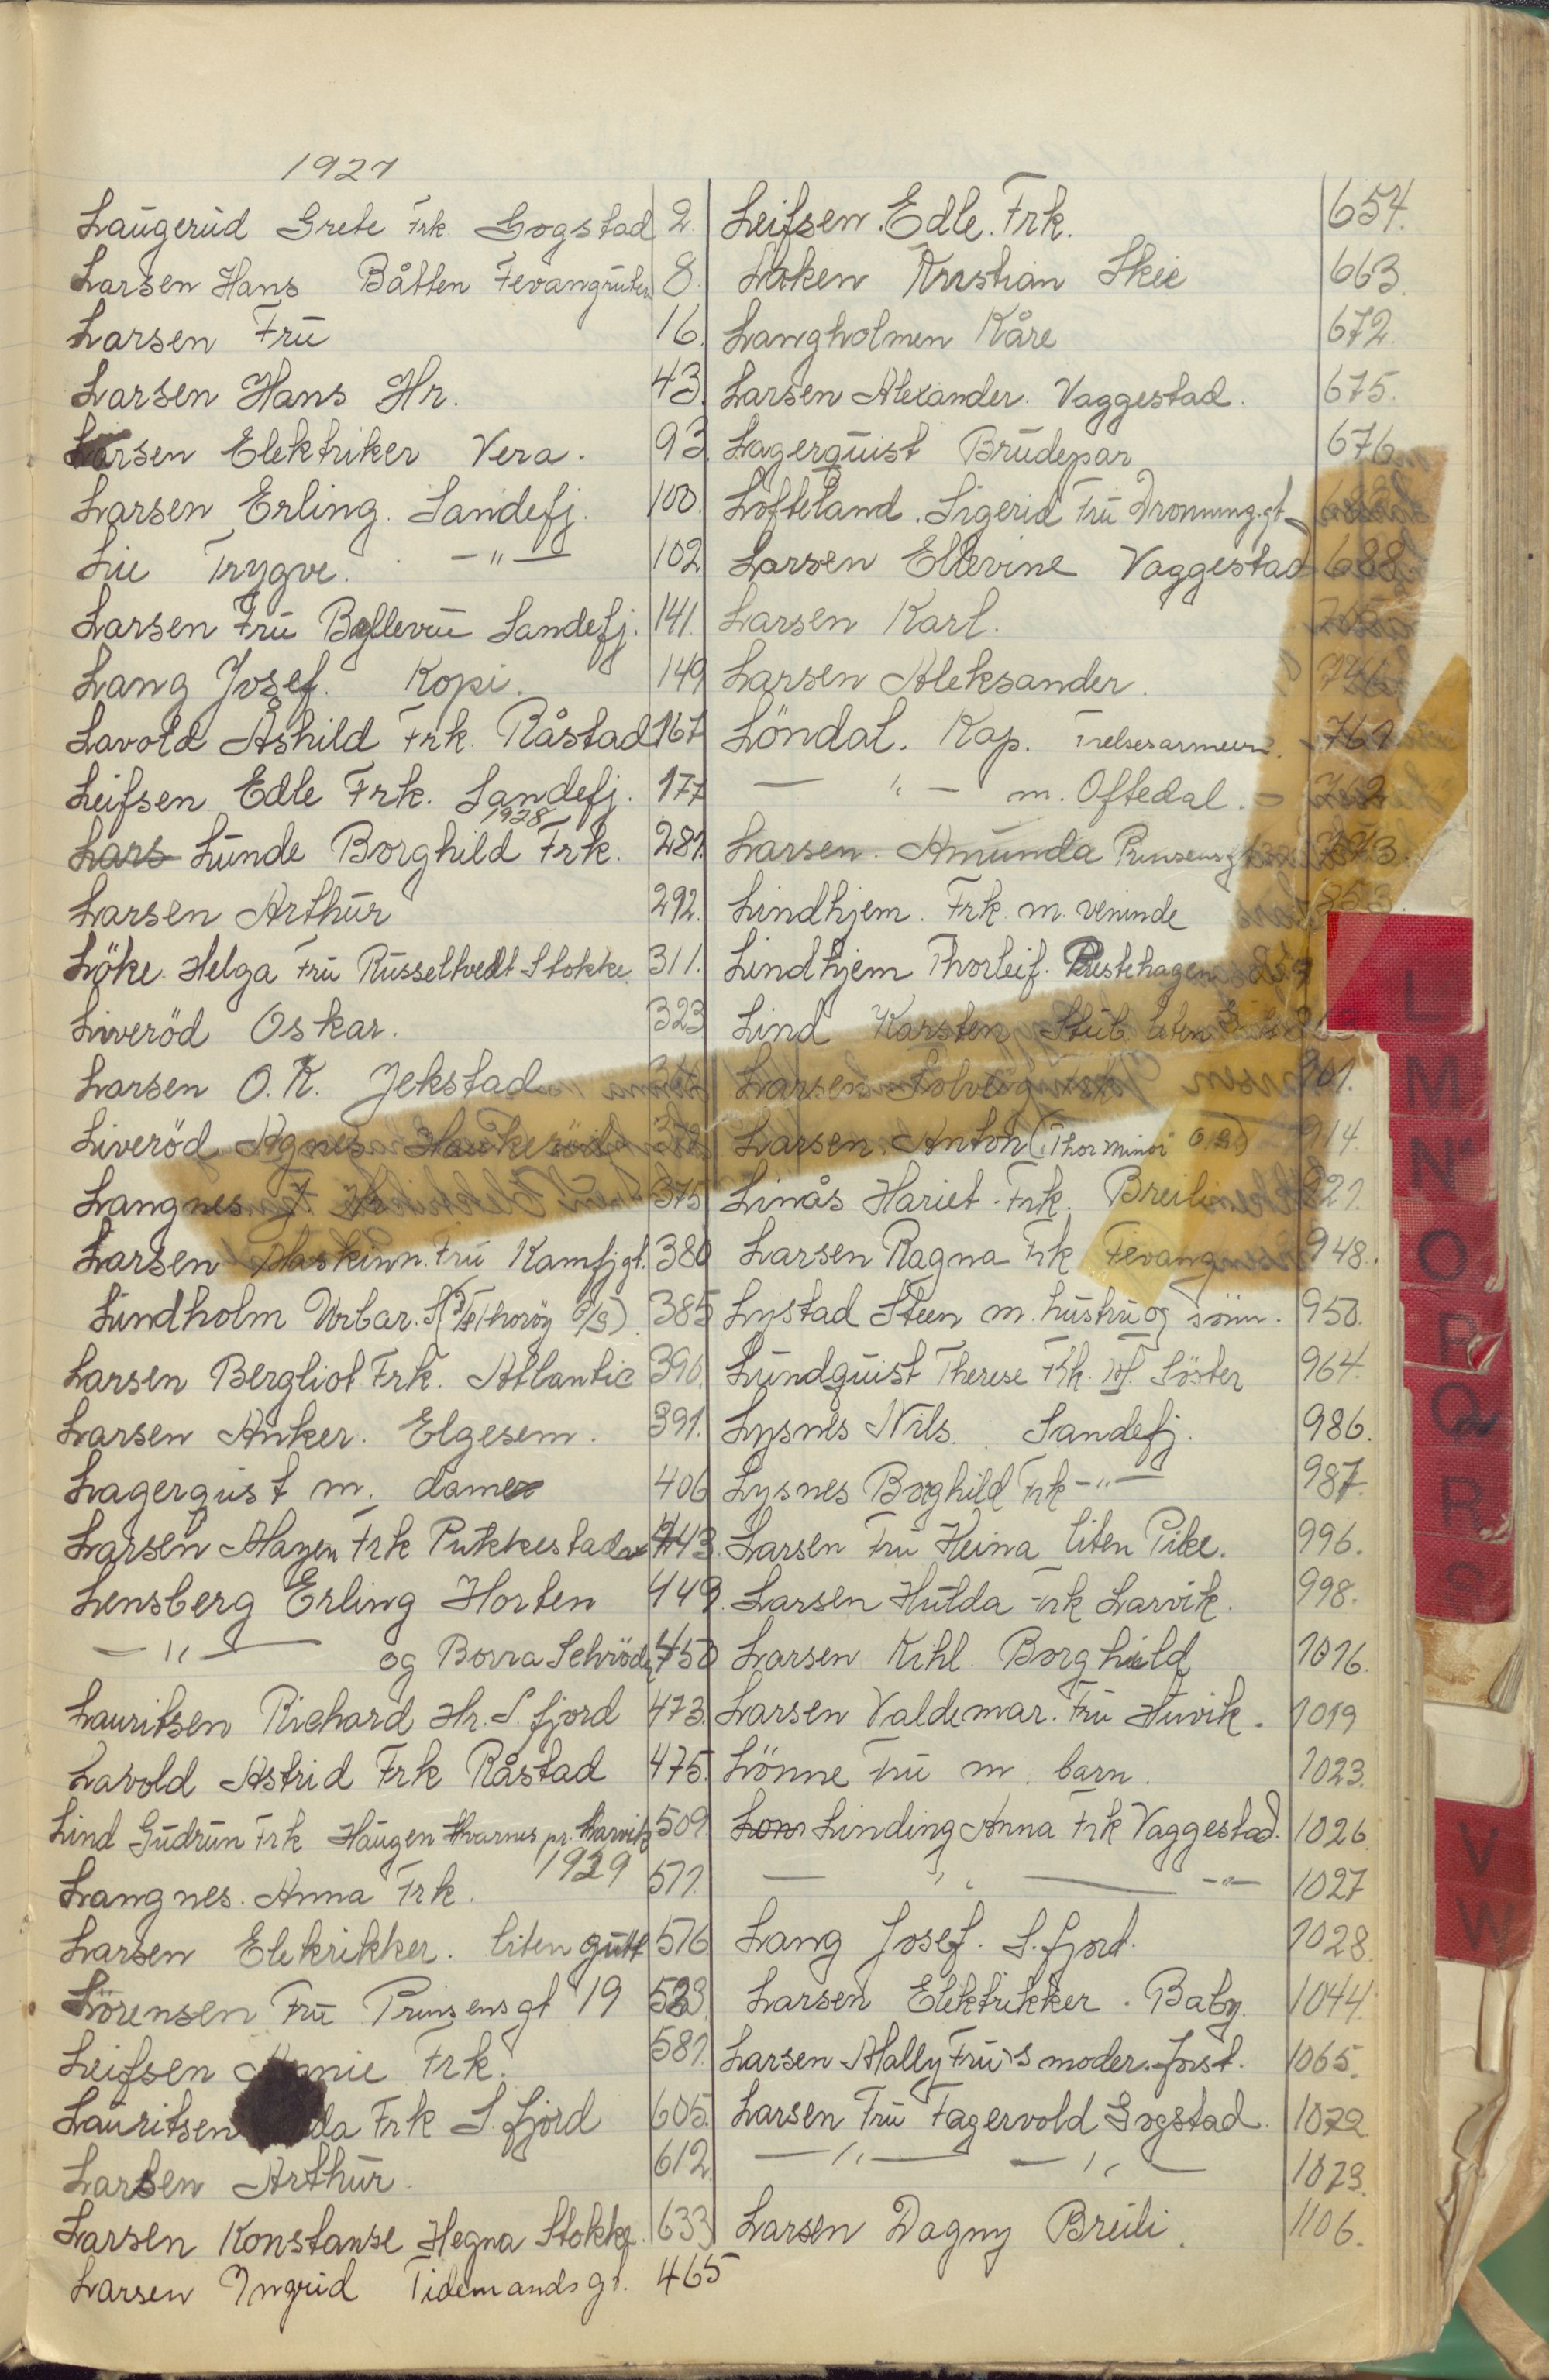 1927
Laugerud Grete Frk. Gogstad 2.
Larsen Hans Båtten Fevangruten 8.
Larsen Fru 16.
Larsen Hans Hr. 43.
Larsen Elektriker Vera. 93.
Larsen Erling. Sandefj. 100.
Lie Trygve. —"— 102.
Larsen Fru Bellevue Sandefj. 141.
Lang Josef. Kopi. 149
Lavold Åshild Frk. Råstad 167
Leifsen Edle Frk. Sandefj. 177
1928
Lars Lunde Borghild Frk. 281.
Larsen Arthur 292.
Löke. Helga Fru Russeltvedt Stokke. 311.
Liveröd Oskar. 323
Larsen O. K. Jekstad
Liveröd Agnes Haukeröd
Langnes. 375
Larsen Maskinn. Fru Kamfjgt. 380
Lindholm Vorbar. 385
Larsen Bergliot Frk. Atlantic 390.
Larsen Anker. Elgesem. 391.
Lagerquist m. dame 406
Larsen Magen Frk Pukkestad 443.
Lensberg Erling Horten 449.
—"— og Borra Schröder 450
Lauritsen Richard Hr. S. fjord 473.
Lavold Astrid Frk Råstad 475.
Lind Gudrun Frk Haugen Kvarnes pr. Larvik 509.
1929
Langnes. Anna Frk. 571.
Larsen Elekrikker. liten gutt 576
Lörensen Fru Prinsensgt 19
Leifsen Frk. 581.
Lauritsen Frk S. fjord 605.
Larsen Arthur. 612
Larsen Konstanse Hegna Stokke. 633
Larsen Ingrid Tidemandsgt. 465
Leifsen. Edle. Frk. 654.
Løken Kristian Skie 663.
Langholmen Kåre 672.
Larsen Alexander. Vaggestad. 675.
Lagerquist Brudepar 676
Lofteland. Sigerid Fru Dronning.gt
Larsen Ellevine Vaggestad 688.
Larsen Karl.
Larsen Aleksander.
Löndal. Kap. Frelsesarmeen. 761
— " — m. Oftedal. 762
Larsen. Amunda Prinsensgt
Lindhjem. Frk. m. veninde 853.
Lindhjem Thorleif. Prestehagen
Lind Karsten
Larsen Solveig 901.
Larsen. Anton (Thor Minor 914.
Linås Hariet. Frk. Breili 921.
Larsen Ragna Frk Fevang 948.
Lystad Steen m. hustru og sönn. 950.
Lundquist Therese Frk. Söster 964.
Lysnes Nils. Sandefj. 986.
Lysnes Borghild Frk —"— 987.
Larsen Fru Heina liten Pike. 996.
Larsen Hulda Frk Larvik. 998.
Larsen Kihl. Borghild 1016.
Larsen Valdemar. Fru Huvik. 1019
Lönne Fru m. barn. 1023.
Lom Linding Anna Frk Vaggestad. 1026
— " — —"— 1027
Lang Josef. S. fjord. 1028.
Larsen Elektrikker. Baby. 1044.
Larsen Mally Fru's moder. Jost. 1065.
Larsen Fru Fagervold Gogstad. 1072
—"— —"— 1073.
Larsen Dagny Breili. 1106.
L
M
N
O
P
Q
R
S
V
W